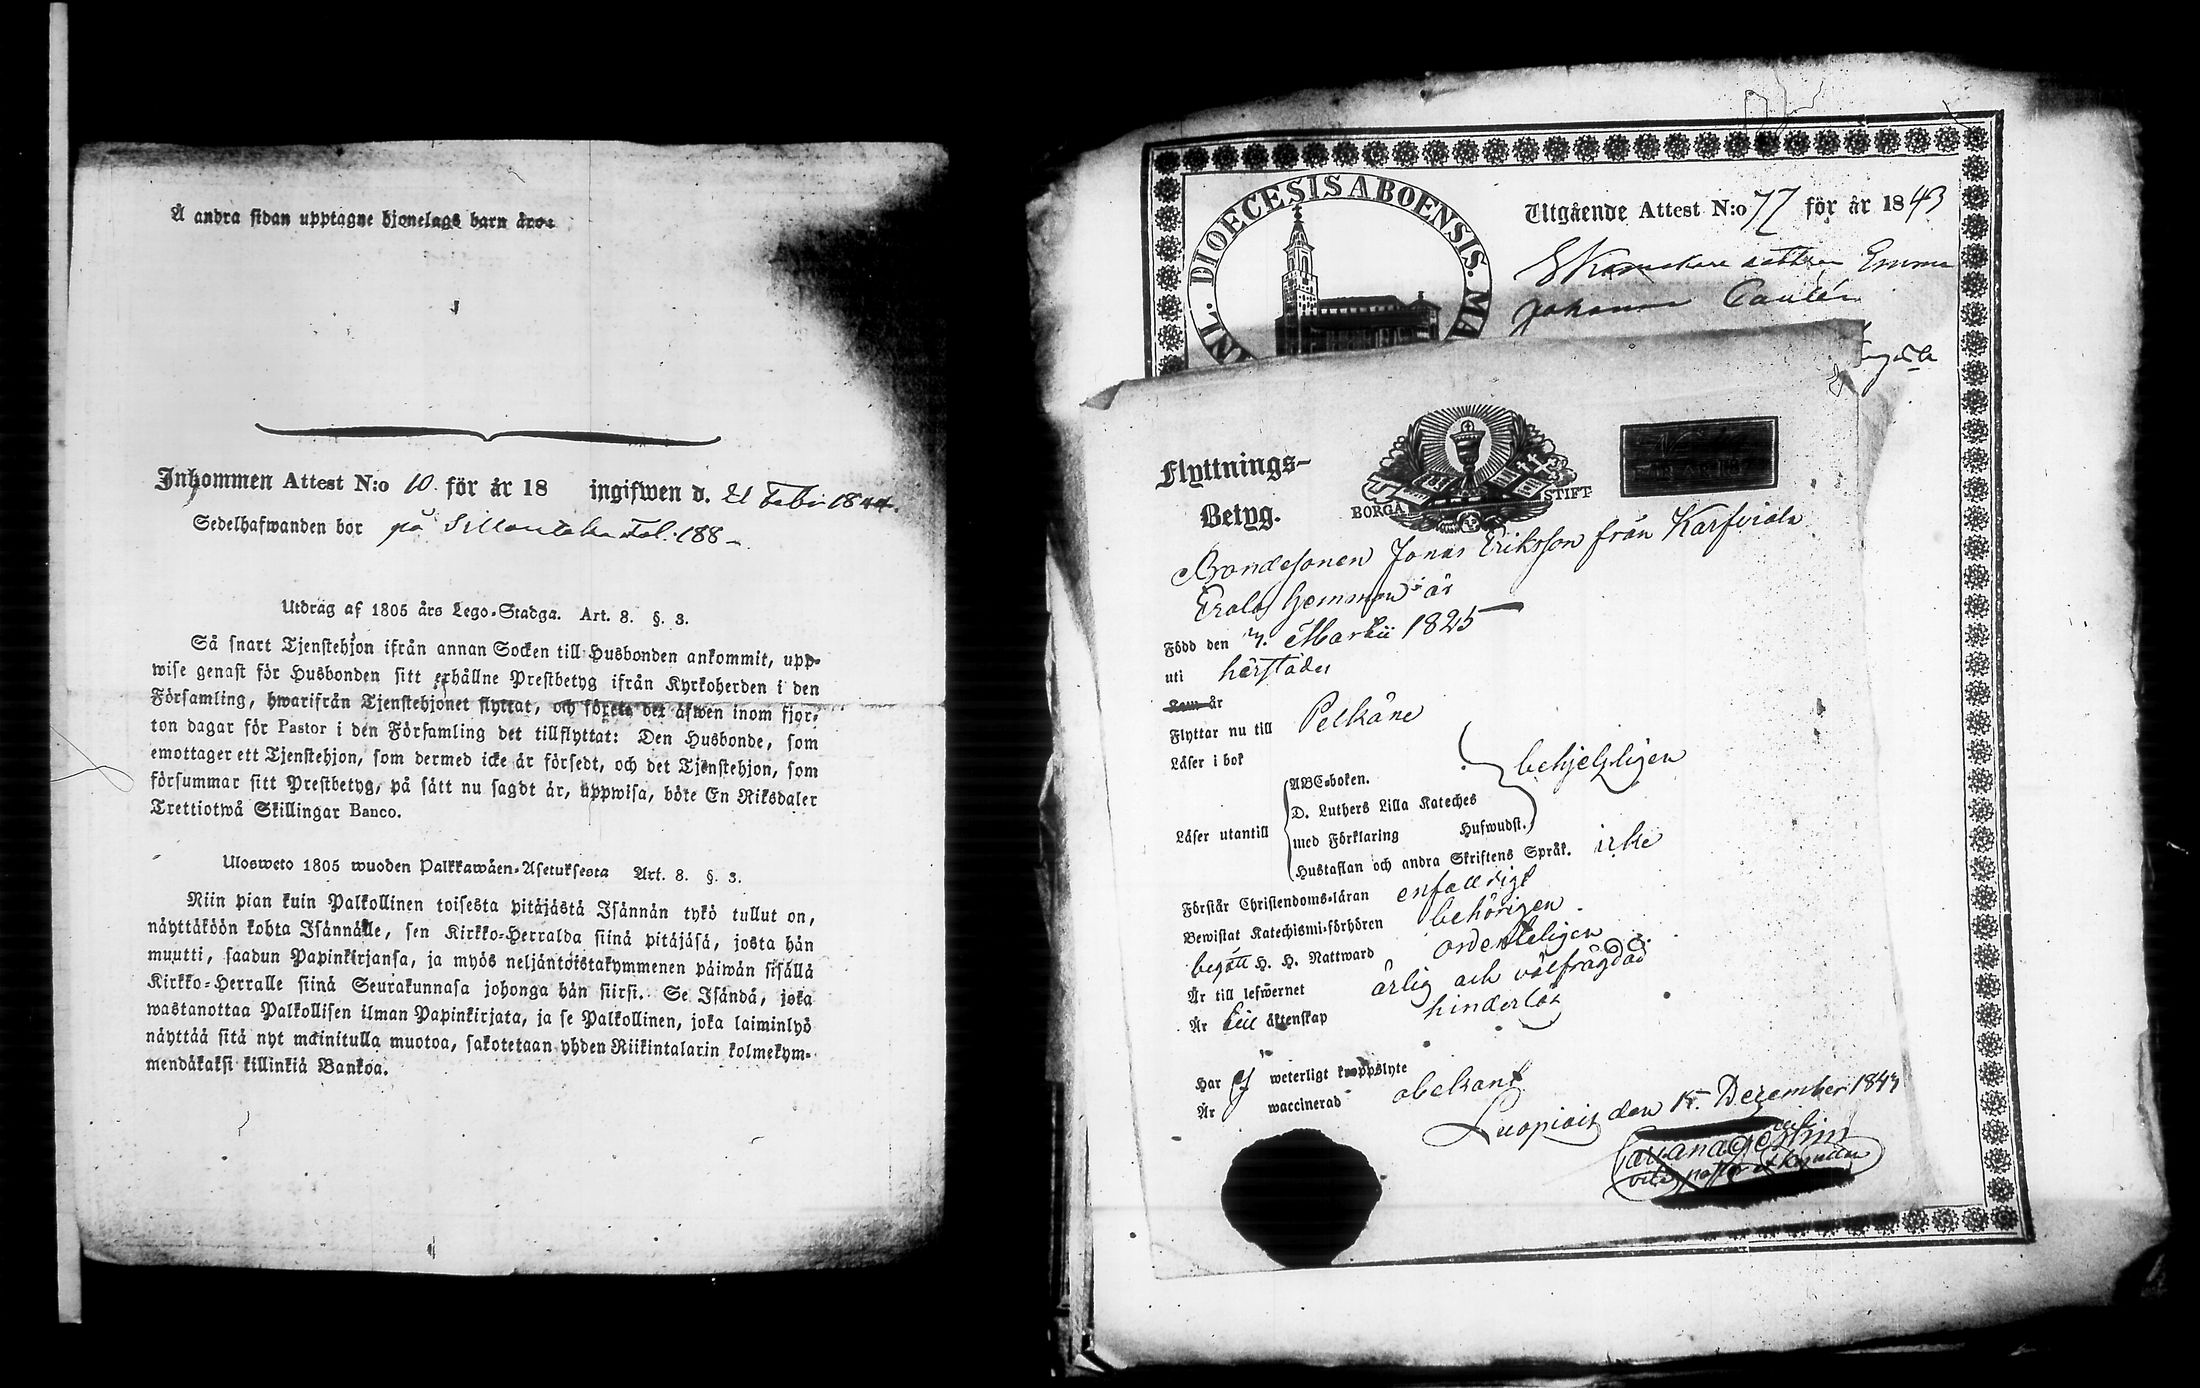 Å andra sidan upptagne hjonelags barn äro:
Inkommen Attest N:o 10. för år 18 ingifwen d. 21 Febr 1844.
Sedelhafwanden bor på Sillantaka Fol. 188
Utdrag af 1805 års Lego-Stadga. Art. 8. §. 3.
Så snart Tjenstehjon ifrån annan Socken till Husbonden ankommit, upp-
wise genast för Husbonden sitt erhållne Prestbetyg ifrån Kyrkoherden i den
Församling, hwarifrån Tjenstehjonet flyttat, och förete det äfwen inom fjor-
ton dagar för Pastor i den Församling det tillflyttat: Den Husbonde, som
emottager ett Tjenstehjon, som dermed icke är försedt, och det Tjenstehjon, som
försummar sitt Prestbetyg, på sätt nu sagdt är, uppwisa, böte En Riksdaler
Trettiotwå Skillingar Banco.
Ulosweto 1805 wuoden Palkkawäen-Asetuksesta Art. 8. §. 3.
Niin pian kuin Palkollinen toisesta pitäjästä Isännän tykö tullut on,
näyttäköön kohta Isännälle, sen Kirkko-Herralda siinä pitäjäsä, josta hän
muutti, saadun Papinkirjansa, ja myös neljäntoistakymmenen päiwän sisällä
Kirkko-Herralle siinä Seurakunnasa johonga hän siirsi. Se Isändä, joka
wastanottaa Palkollisen ilman Papinkirjata, ja se Palkollinen, joka laiminlyö
näyttää sitä nyt mainitulla muotoa, sakotetaan yhden Riikintalarin kolmekym-
mendäkaksi killinkiä Bankoa.
DIOECESIS ABOENSIS. MA
Utgående Attest N:o 77 för år 1843
Skomakare dottren Emma
Johanna
Flyttnings-
Betyg.
BORGÅ STIFT
Bondesonen Jonas Eriksson från Karfviala
Erola hemman är
Född den 7. Martii 1825
uti härstädes
Kom är
Flyttar nu till Pelkäne
Läser i bok
behjelpligen
Läser utantill
ABC-boken.
D. Luthers Lilla Kateches
med Förklaring Hufwudst.
Hustaflan och andra Skriftens Språk. icke
Förstår Christendoms-läran enfalldigt
Bewistat Katechismi-förhören behörigen
begått H. H. Nattward ordenteligen
Är till lefwernet ärlig och välfrägdad
Är till äktenskap hinderlös
Har ej weterligt kroppslyte
Är waccinerad obekant
Luopiois den 15. Dezember 1843